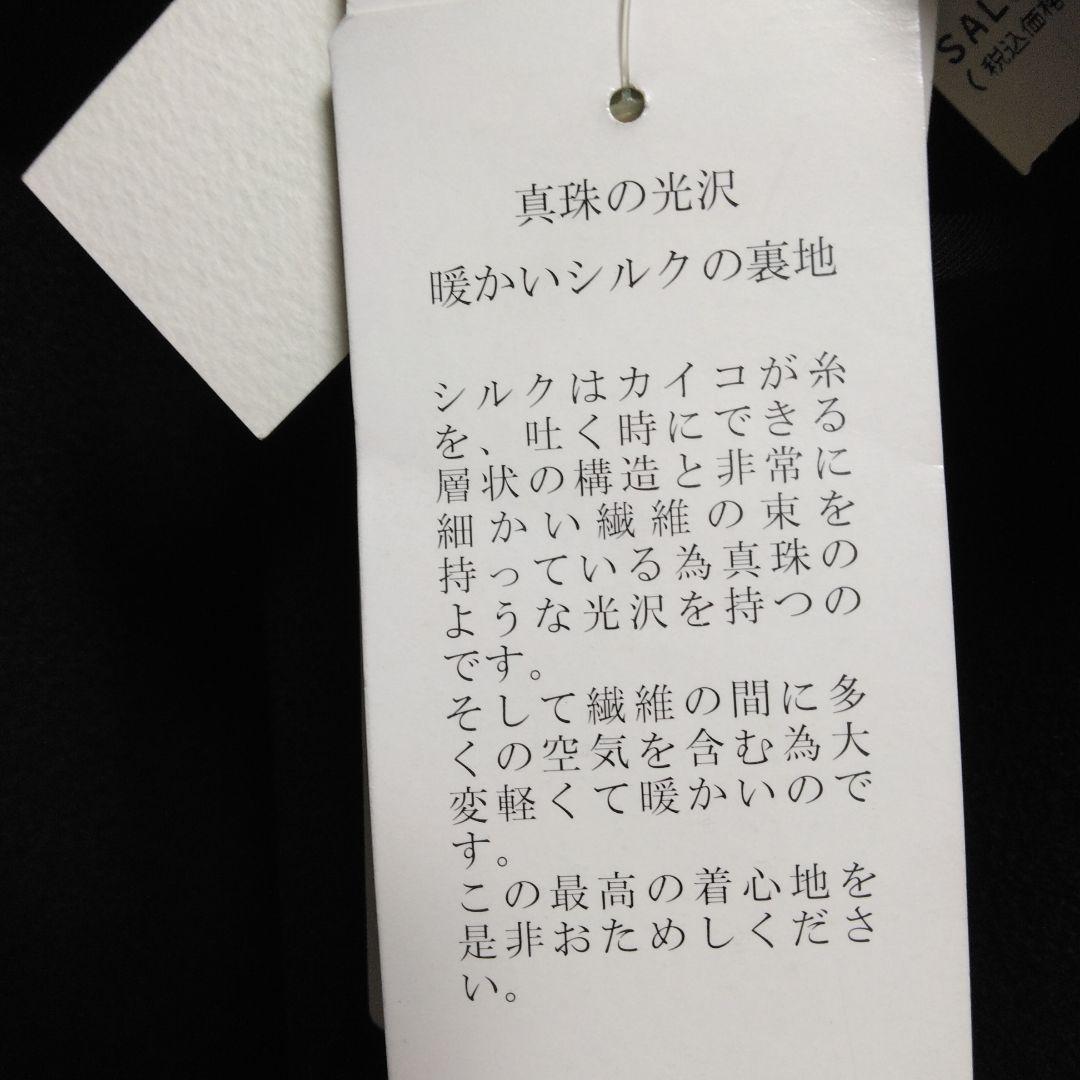 真珠の光沢
暖かいシルクの裏地
シルクはカイコが糸
を、吐く時にできる
層状の構造と非常に
細かい繊維の束を
持っている為真珠の
ような光沢を持つの
です。
そして繊維の間に多
くの空気を含む為大
変軽くて暖かいので
す。
この最高の着心地を
是非おためしくださ
い。
SAL
(税込価格